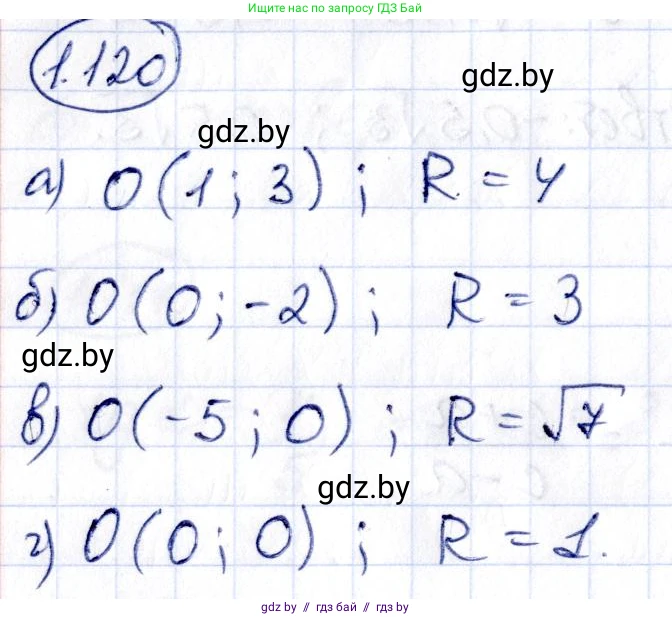 Ищите нас по запросу ГДЗ Бай
1.120
gdz.by
gdz.by
а) O(1; 3); R = 4
б) O(0; -2); R = 3
gdz.by
в) O(-5; 0); R = √7
gdz.by
г) O(0; 0); R = 1.
gdz by // гдз бай // gdz by